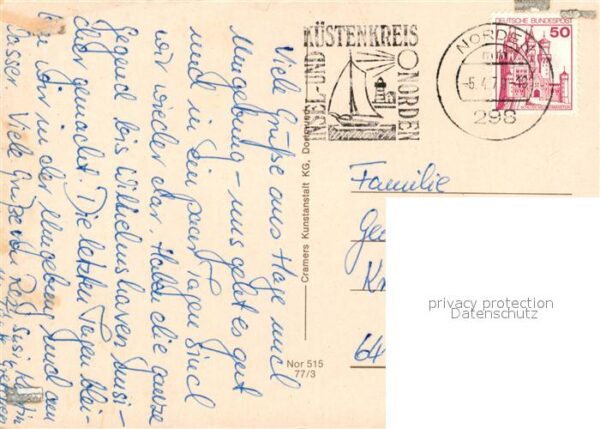 Viele Grüße aus Hage und
Umgebung - uns geht es gut
und in ein paar Tagen sind
wir wieder da. Haben die ganze
Gegend bis Wilhelmshaven unsi-
cher gemacht. Die letzten Tagen blei-
ben wir in der Umgebung und am
Wasser. Viele Grüße von Susi
INSEL- UND
KÜSTENKREIS
NORDEN
NORDEN
298
DEUTSCHE BUNDESPOST
50
Cramers Kunstanstalt KG, Dortmund
Nor 515
77/3
Familie
64
privacy protection
Datenschutz